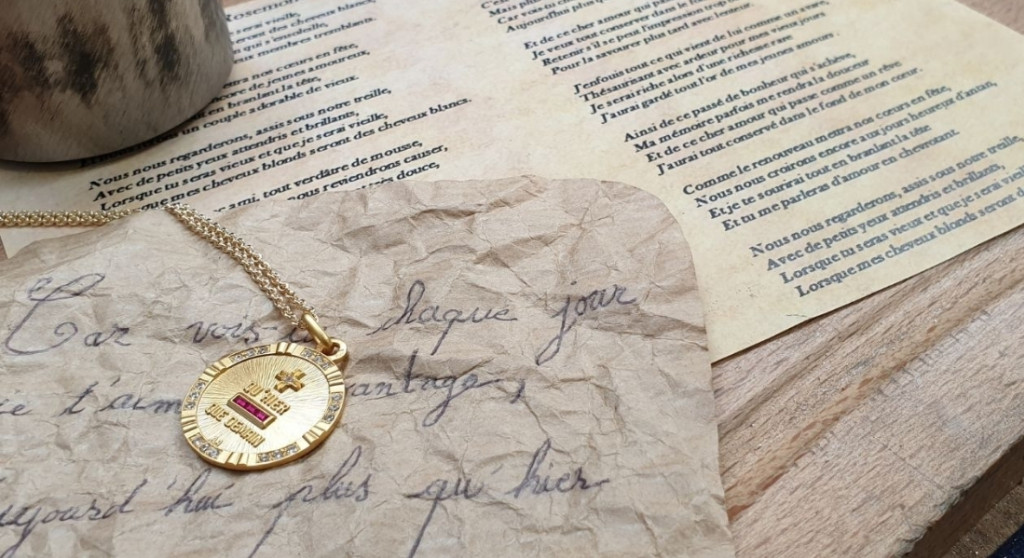 vieille,
nos cœurs en fête,
encore de jeunes amoureux,
en branlant la tête,
un couple adorable de vieux.
Nous nous regarderons, assis sous notre treille,
Avec de petits yeux attendris et brillants,
Lorsque tu seras vieux et que je serai vieille,
mes cheveux blonds seront des cheveux blancs.
ami, tout verdâtre de mousse,
nous reviendrons causer,
douce,
Et de ce cher amour qui
Je veux tout conserver dans le
Retenir s'il se peut l'impression trop
Pour la savourer plus tard avec lenteur.
J'enfouis tout ce qui vient de lui comme un avare,
Thésaurisant avec ardeur pour mes vieux jours
Je serai riche alors d'une richesse rare
J'aurai gardé tout l'or de mes jeunes amours
Ainsi de ce passé de bonheur qui s'achève,
Ma mémoire parfois me rendra la douceur
Et de ce cher amour qui passe comme un rêve
J'aurai tout conservé dans le fond de mon cœur.
Comme le renouveau mettra nos cœurs en fête,
Nous nous croirons encore aux jours heureux d'antan,
Et je te sourirai tout en branlant la tête
Et tu me parleras d'amour en chevrotant.
Nous nous regarderons, assis sous notre treille,
Avec de petits yeux attendris et brillants,
Lorsque tu seras vieux et que je serai vieille
Lorsque mes cheveux blonds seront
Car vois-tu chaque jour
je t'aime davantage,
Aujourd'hui plus qu'hier
+
QU'HIER
-
QUE DEMAIN